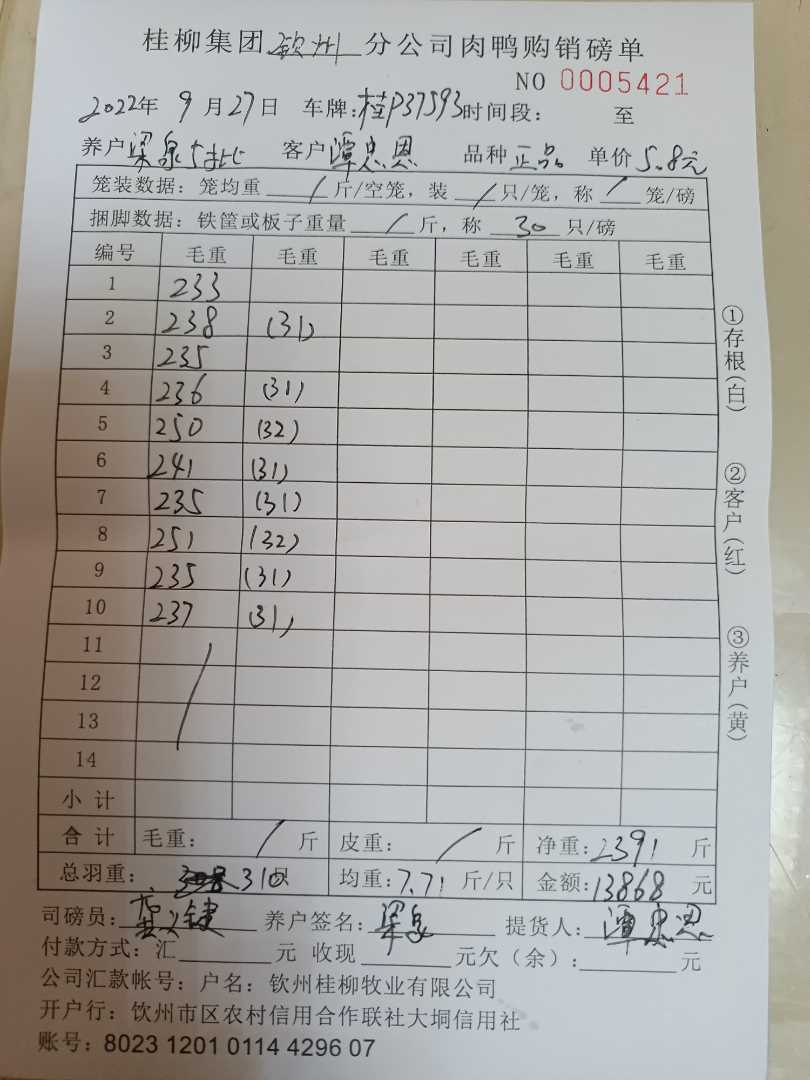 桂柳集团 钦州 分公司肉鸭购销磅单
NO 0005421
2022年 9 月 27 日 车牌：桂P37593 时间段： 至
养户 梁泉 客户 潭忠恩 品种 正品 单价 5.8元
笼装数据：笼均重 / 斤/空笼，装 / 只/笼，称 / 笼/磅
捆脚数据：铁筐或板子重量 / 斤，称 30 只/磅
编号 毛重 毛重 毛重 毛重 毛重 毛重
1 233
2 238 (31)
3 235
4 236 (31)
5 250 (32)
6 241 (31)
7 235 (31)
8 251 (32)
9 235 (31)
10 237 (31)
11
12
13
14
小 计
合 计 毛重： / 斤 皮重： / 斤 净重：2391 斤
总羽重： 310 只 均重：7.71 斤/只 金额：13868 元
司磅员： 养户签名：梁泉 提货人：潭忠恩
付款方式：汇 元 收现 元欠（余）： 元
公司汇款帐号：户名：钦州桂柳牧业有限公司
开户行：饮州市区农村信用合作联社大垌信用社
账号：8023 1201 0114 4296 07
①存根（白）
②客户（红）
③养户（黄）